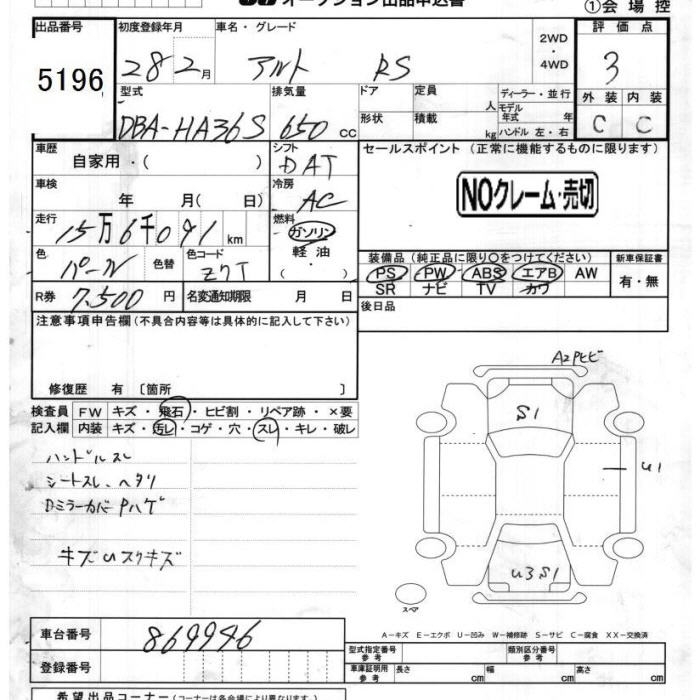 オークション出品申込書
①会場控
出品番号
5196
初度登録年月
28 2月
車名・グレード
アルト RS
2WD
・
4WD
評価点
3
外装 内装
C C
型式
DBA-HA36S
排気量
650 cc
ドア
形状
定員
人
積載
kg
ディーラー・並行
モデル年式 年
ハンドル 左・右
車歴
自家用・( )
シフト
DAT
車検
年 月( 日)
冷房
AC
セールスポイント (正常に機能するものに限ります)
NOクレーム・売切
走行
15万6千091km
燃料
ガソリン
軽油
・( )
色
パール
色替
色コード
Z7T
装備品 (純正品に限り○をつけてください)
PS PW ABS エアB AW
SR ナビ TV カワ
新車保証書
有・無
R券 7,500 円
名変通知期限 月 日
後日品
注意事項申告欄 (不具合内容等は具体的に記入して下さい)
修復歴 有 〔箇所 〕
検査員記入欄
FW キズ・飛石・ヒビ割・リペア跡・×要
内装 キズ・汚レ・コゲ・穴・スレ・キレ・破レ
ハンドルスレ
シートスレ、ヘタリ
Dミラーカバー Pハゲ
キズUスリキズ
A2Pヒビ
S1
U1
U3S1
スペア
A－キズ E－エクボ U－凹み W－補修跡 S－サビ C－腐食 XX－交換済
車台番号
869946
登録番号
型式指定番号 参考
類別区分番号 参考
車庫証明用 参考
長さ cm
幅 cm
高さ cm
希望出品コーナー (コーナーは各会場により異なります)